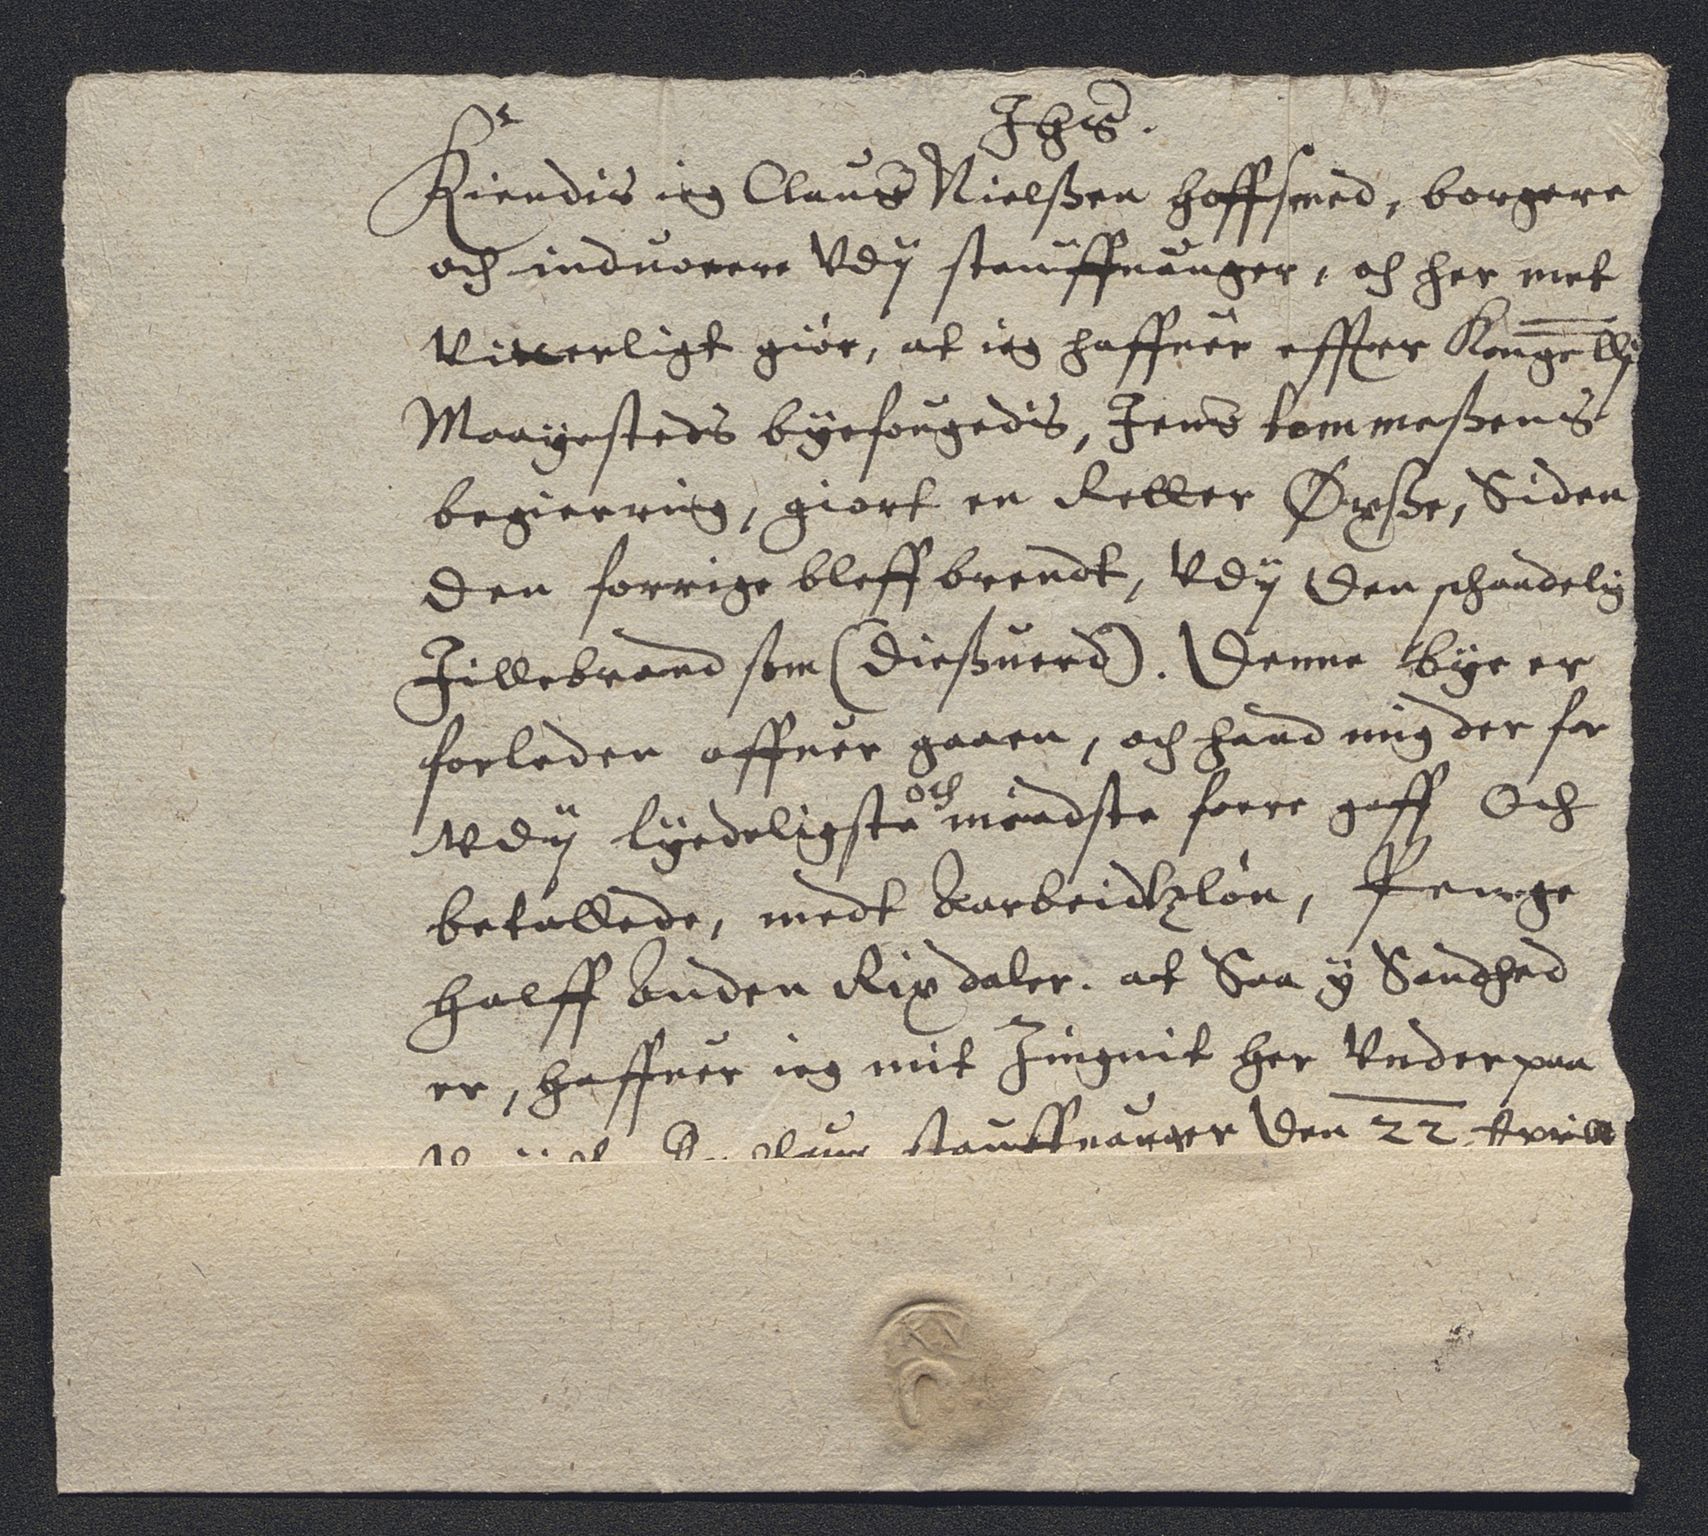 Jhs.
Kiendis ieg Claus Nielßen hoffsmed, borgere
och induonere Vdÿ stauffuanger, och her met
Vitterligt giör, at ieg haffuer effter Kongellÿ
Maayesteds bÿefougedis, Jens tommeßens
begierring, giort en Retter Øxße, Siden
den forrige bleff brendt, Vdÿ den schandelig
Jillebrand som (dießuerd). denne bÿe er
forleden offuer gaaen, och hand mig der for
Vdÿ lÿedeligste och mindste foere gaff Och
betallede, medt Aarbeidtzlön, Penge
halff Anden Rixdaler. at Saa ÿ Sandhed
er, haffuer ieg mit Zingnit her Vnder paa
stauffuanger den 22 Aprill